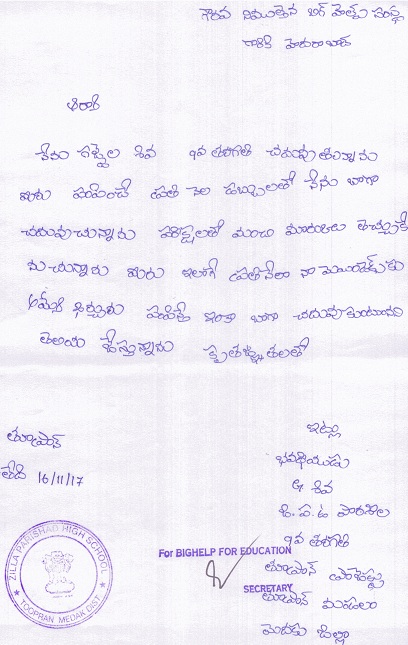 గౌరవ నిములైన బిగ్ హెల్ప్ సంస్థ
గారికి హైదరాబాద్
నేను గజ్వెల శివ 9వ తరగతి చదువుతున్నాను
మీరు పంపించే ప్రతి నెల డబ్బులతో నేను బాగా
చదువుచున్నాను పరీక్షలలో మంచి మార్కులు తెచ్చుకో
ను చున్నాను మీరు ఇలాగే ప్రతినెలా నా
పంపిస్తే ఇంకా బాగా చదువుకుంటానని
తెలియ జేస్తున్నాను కృతజ్ఞతలతో
తూప్రాన్
తేది 16/11/17
ఇట్లు
భవదీయుడు
G శివ
జి.ప.ఉ పాఠశాల
9వ తరగతి
తూప్రాన్
తూప్రాన్ మండలం
మెదక్ జిల్లా
For BIGHELP FOR EDUCATION
SECRETARY
ZILLA PARISHAD HIGH SCHOOL
TOOPRAN MEDAK DIST